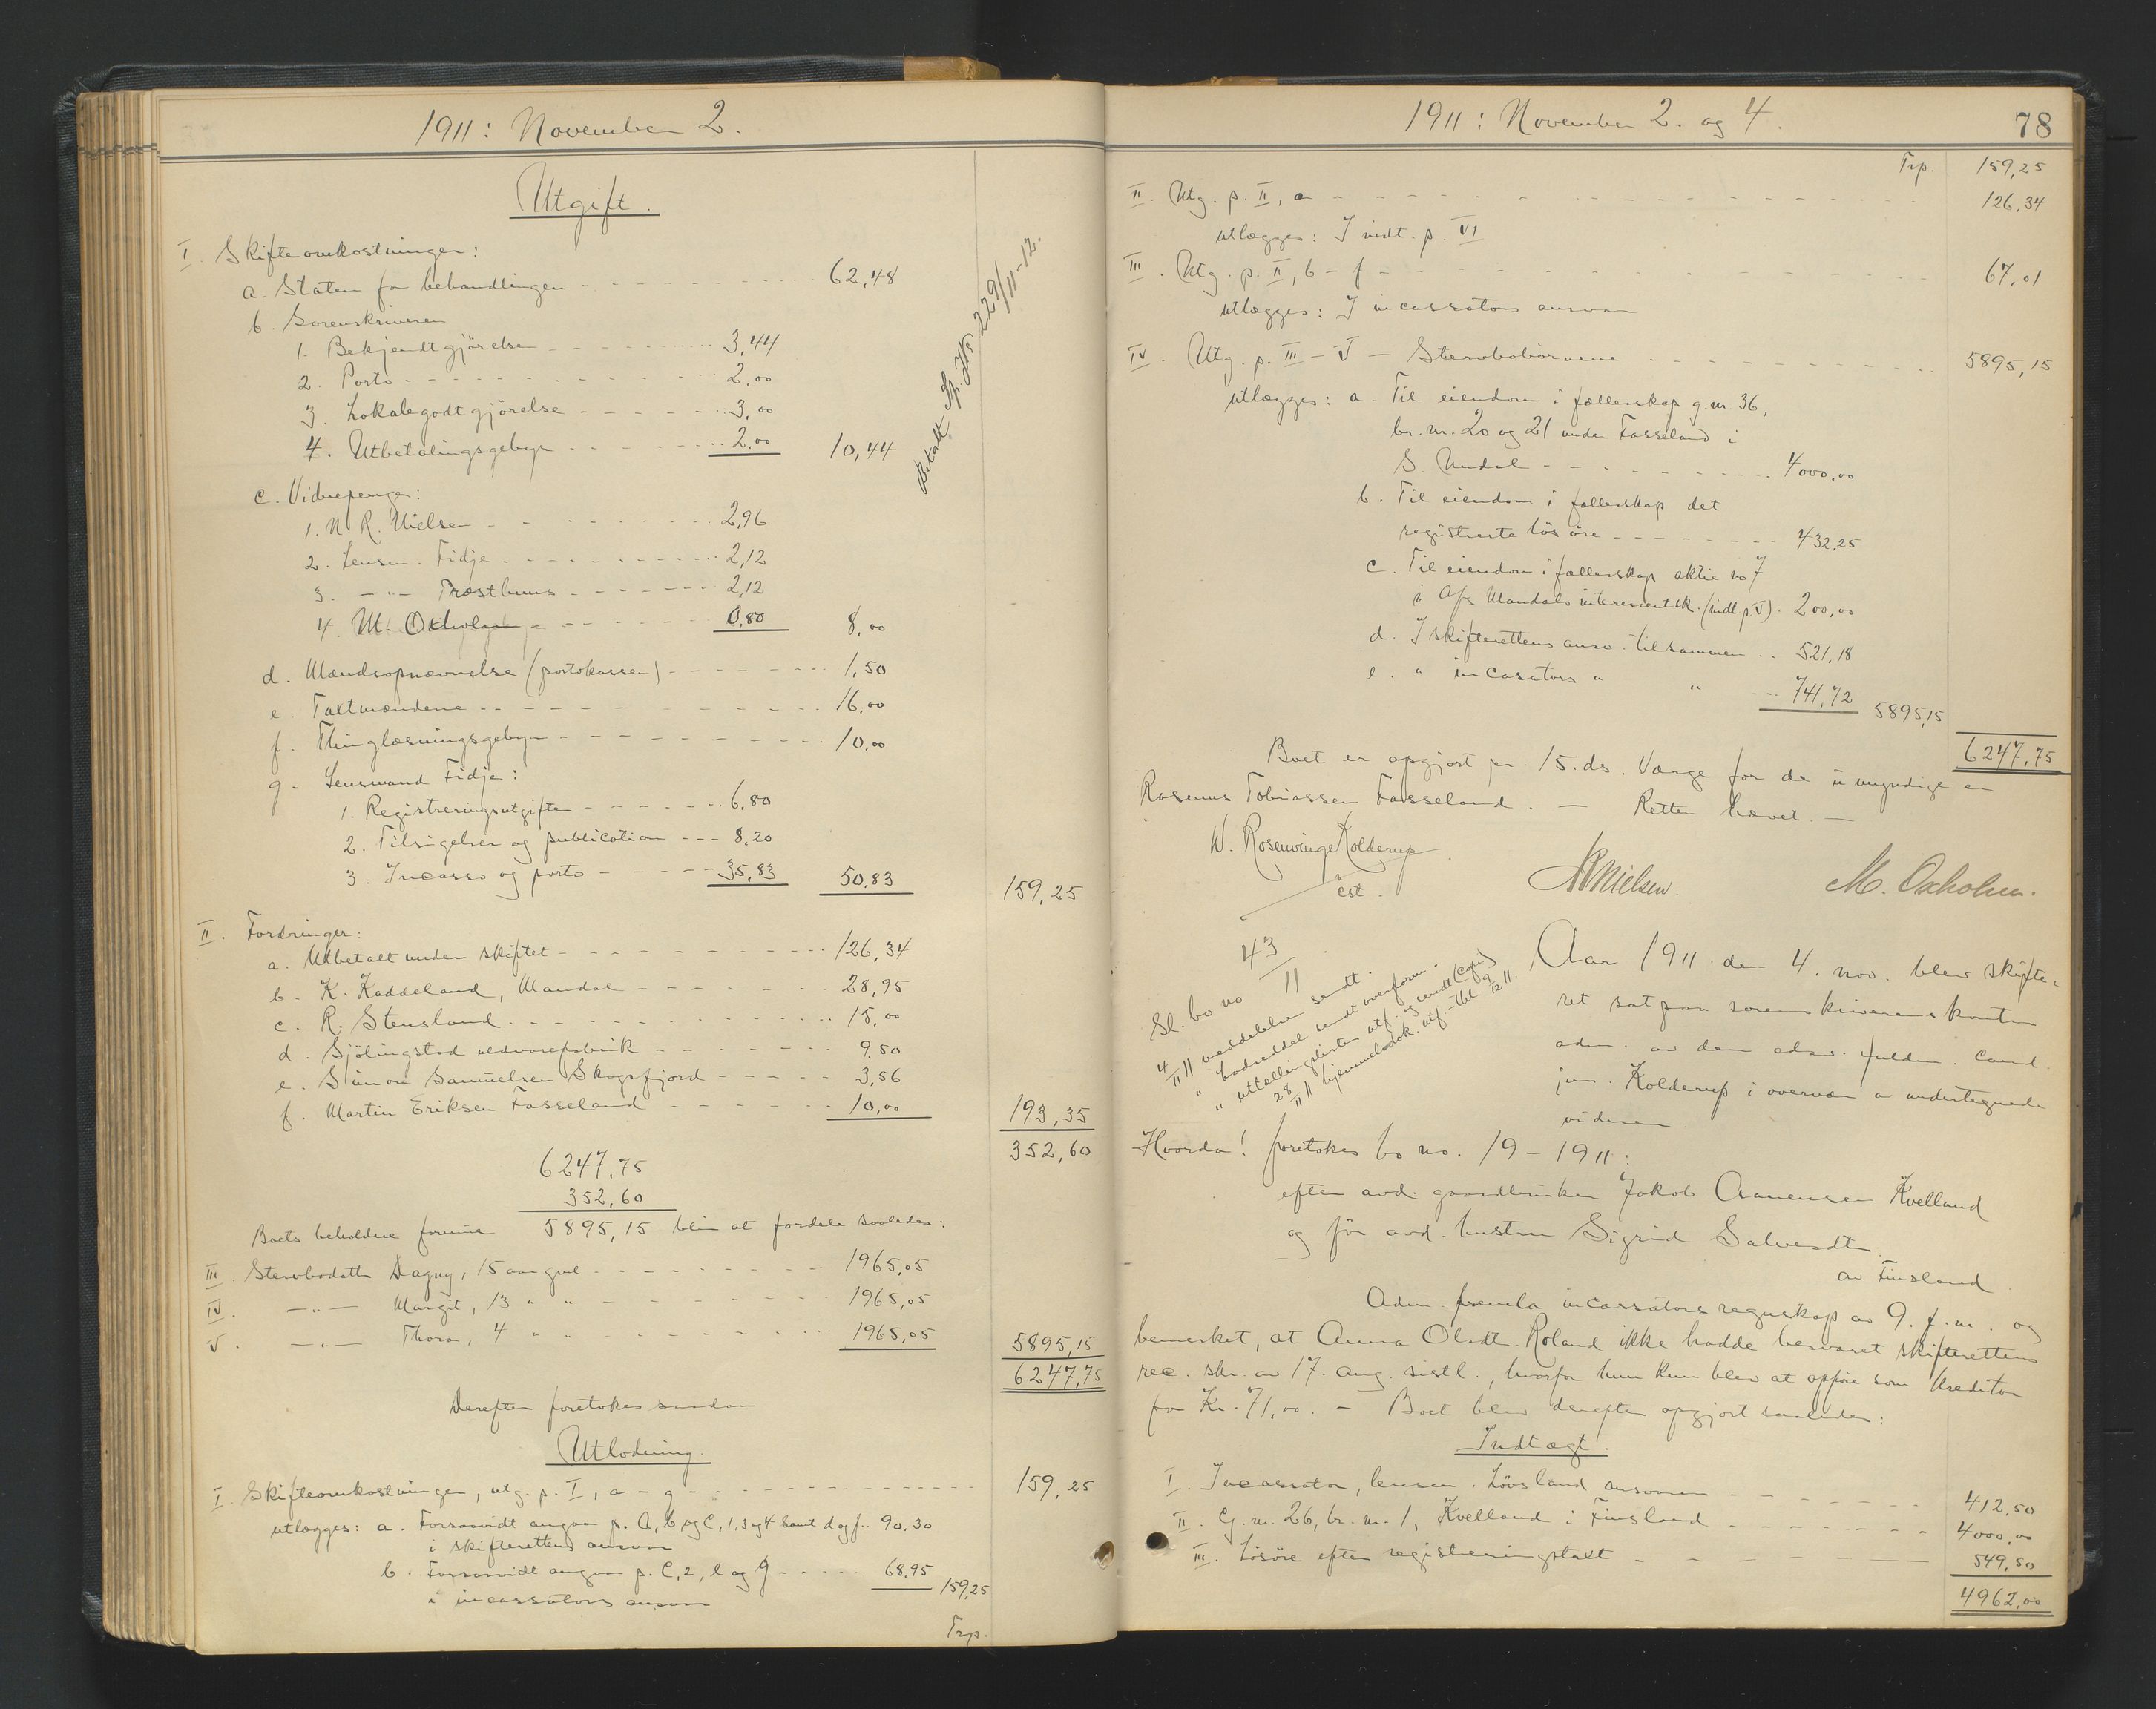 1911: November 2.
Utgift.
I. Skifteomkostninger:
a. Staten for behandlingen 62,48
b. Sorenskriveren
1. Bekjendtgjörelse 3,44
2. Porto 2,00
3. Lokalegodtgjörelse 3,00
4. Utbetalingsgebyr 2,00 10,44
c. Vidnepenge:
1. N. R. Nielsen 2,96
2. Lensm. Fidje 2,12
3. —"— Træsthuus 2,12
4. M. Oxholm 0,80 8,00
d. Mændsopnævnelse (portokassen) 1,50
e. Taxtmændene 16,00
f. Thinglæsningsgebyr 10,00
g. Lensmand Fidje:
1. Registreringsutgifter 6,80
2. Tilsigelser og publication 8,20
3. Incasso og porto 35,83 50,83 159,25
Betalt 229/11-12.
II. Fordringer:
a. Utbetalt under skiftet 126,34
b. K. Kaddeland, Mandal 28,95
c. R. Stensland 15,00
d. Sjölingstad uldvarefabrik 9,50
e. Simon Samuelsen Skogsfjord 3,56
f. Martin Eriksen Fasseland 10,00 193,35
352,60
6247,75
352,60
Boets beholdne formue 5895,15 blir at fordele saaledes:
III. Stervbodatter Dagny, 15 aar gml 1965,05
IV. —"— Margit, 13 " " 1965,05
V. —"— Thora, 4 " " 1965,05 5895,15
6247,75
Derefter foretokes saadan
Utlodning.
I. Skifteomkostninger, utg. p. I, a - g 159,25
utlægges: a. Forsaavidt angaar p. a, b og c, 1, 3 og 4 samt d og f. 90,30
i skifterettens ansvar
b. Forsaavidt angaar p. c, 2, e og g 68,95 159,25
i incassators ansvar
Trp.
1911: November 2. og 4.
78
Trp. 159,25
II. Utg. p. II, a 126,34
utlægges: I indt. p. VI
III. Utg. p. II, b - f 67,01
utlægges: I incassators ansvar
IV. Utg. p. III - V - Stervbobörnene 5895,15
utlægges: a. Til eiendom i fællerskap g.nr. 36,
br. nr. 20 og 21 under Fasseland i
S. Undal 4000,00
b. Til eiendom i fællerskap det
registrerte lösöre 432,25
c. Til eiendom i fællerskap aktie no 7
i Mandals interessentsk. (indt p. V). 200,00
d. I skifterettens ansv. tilsammen 521,18
e. " incasators " " 741,72 5895,15
6247,75
Boet er opgjort pr. 15. ds. Værge for de umyndige er
Rasmus Tobiassen Fasseland. — Retten hævet. —
W. Rosenvinge Kolderup
cst.
NRNielsen. M. Oxholm.
Sl. bo no 43/11
4/11 11 meddelelse sendt.
" bodseddel sendt overform.
" uttællingslisten utf. og sendt (copi)
28/11 11 hjemmelsdok. utf. - tbl. 9/12 11.
Aar 1911 den 4. nov. blev skifte-
ret sat paa sorenskriverens kontor
adm. av den edsv. fuldm. cand.
jur. Kolderup i overvær av undertegnede
vidner
Hvorda! foretokes bo no. 19 - 1911:
efter avd. gaardbruker Jakob Aanensen Kvelland
og för avd. hustru Sigrid Salvesdtr.
av Finsland
Adm. fremla incassators regnskap av 9. f. m. og
bemerket, at Anna Olsdt. Roland ikke hadde besvaret skifterettens
rec. skr. av 17. aug. sistl., hvorfor hun kun blev at opföre som kreditor
for Kr. 71,00. — Boet blev derefter opgjort saaledes:
Indtægt.
I. Incassator, lensm. Lövsland ansvarer 412,50
II. G.nr. 26, br. nr. 1, Kvelland i Finsland 4000,00
III. Lösöre efter registreringstakst 549,50
4962,00